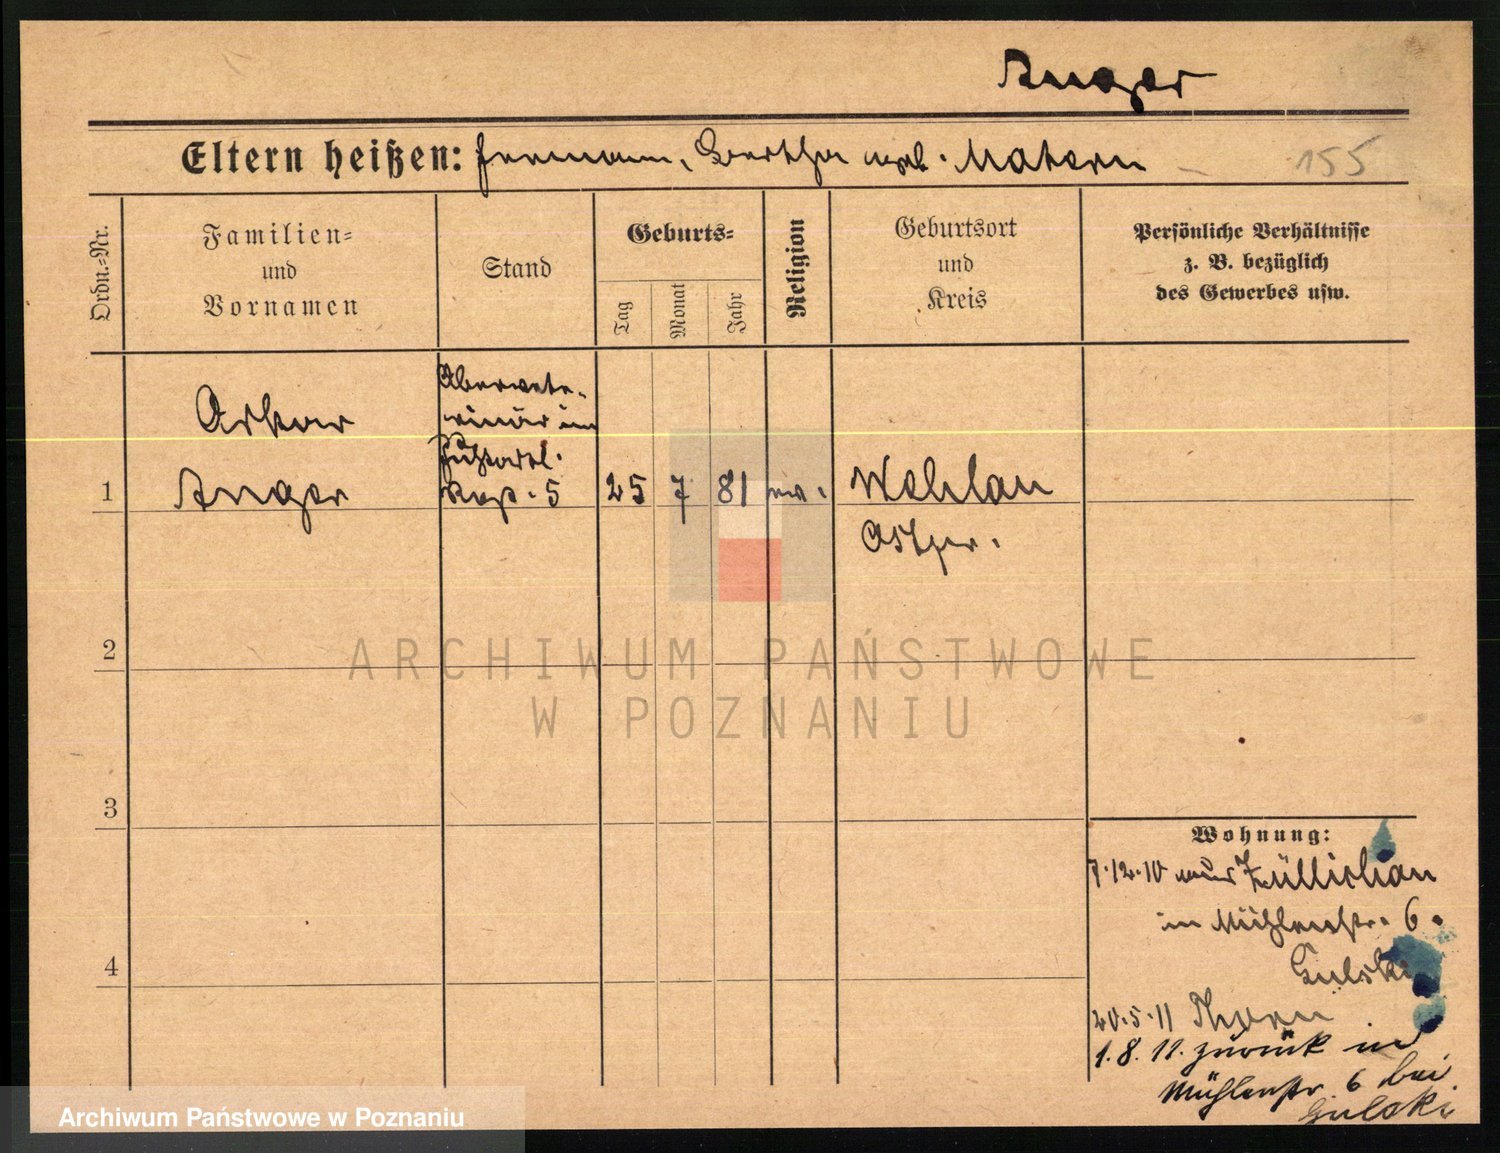 Anger
Eltern heißen: Hermann, Bertha geb. Matern
155
Ordn.-Nr.
Familien-
und
Vornamen
Stand
Geburts-
Tag
Monat
Jahr
Religion
Geburtsort
und
Kreis
Persönliche Verhältnisse
z. B. bezüglich
des Gewerbes usw.
1
Oskar
Anger
Obervete-
rinär im
Fußartl.
Regt. 5
25 7 81 ev.
Wehlau
Ostpr.
2
3
4
ARCHIWUM PAŃSTWOWE
W POZNANIU
Wohnung:
7.12.10 aus Züllichau
in Mühlenstr. 6.
Gulski
20.5.11 Thorn
1.8.11. zurück in
Mühlenstr 6 bei
Gulski
Archiwum Państwowe w Poznaniu